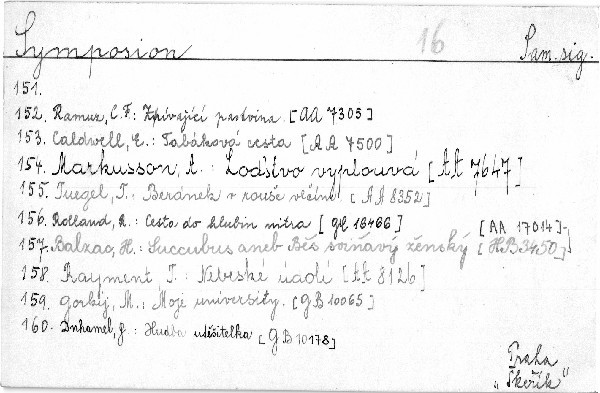 Symposion 16 Sam. sig.
151.
152. Ramuz, C.F.: Zpívající pastvina. [AA 7305]
153. Caldwell, E.: Tabáková cesta [AA 7500]
154. Markusson, A.: Loďstvo vyplouvá [AA 7647]
155. T.: Beránek v rouše vlčím. [AA 8352]
156. Rolland, R.: Cesta do hlubin nitra [ 16466] [AA 17014]
157. Balzac, H.: Succubus aneb Běs svíňavý ženský [HB 3450]
158. Rayment, T.: Nebeské údolí [AA 8126]
159. Gorkij, M.: Moje university. [GB 10065]
160. Duhamel, G.: Hudba utěšitelka [GB 10178]
Praha
„Škeřík"